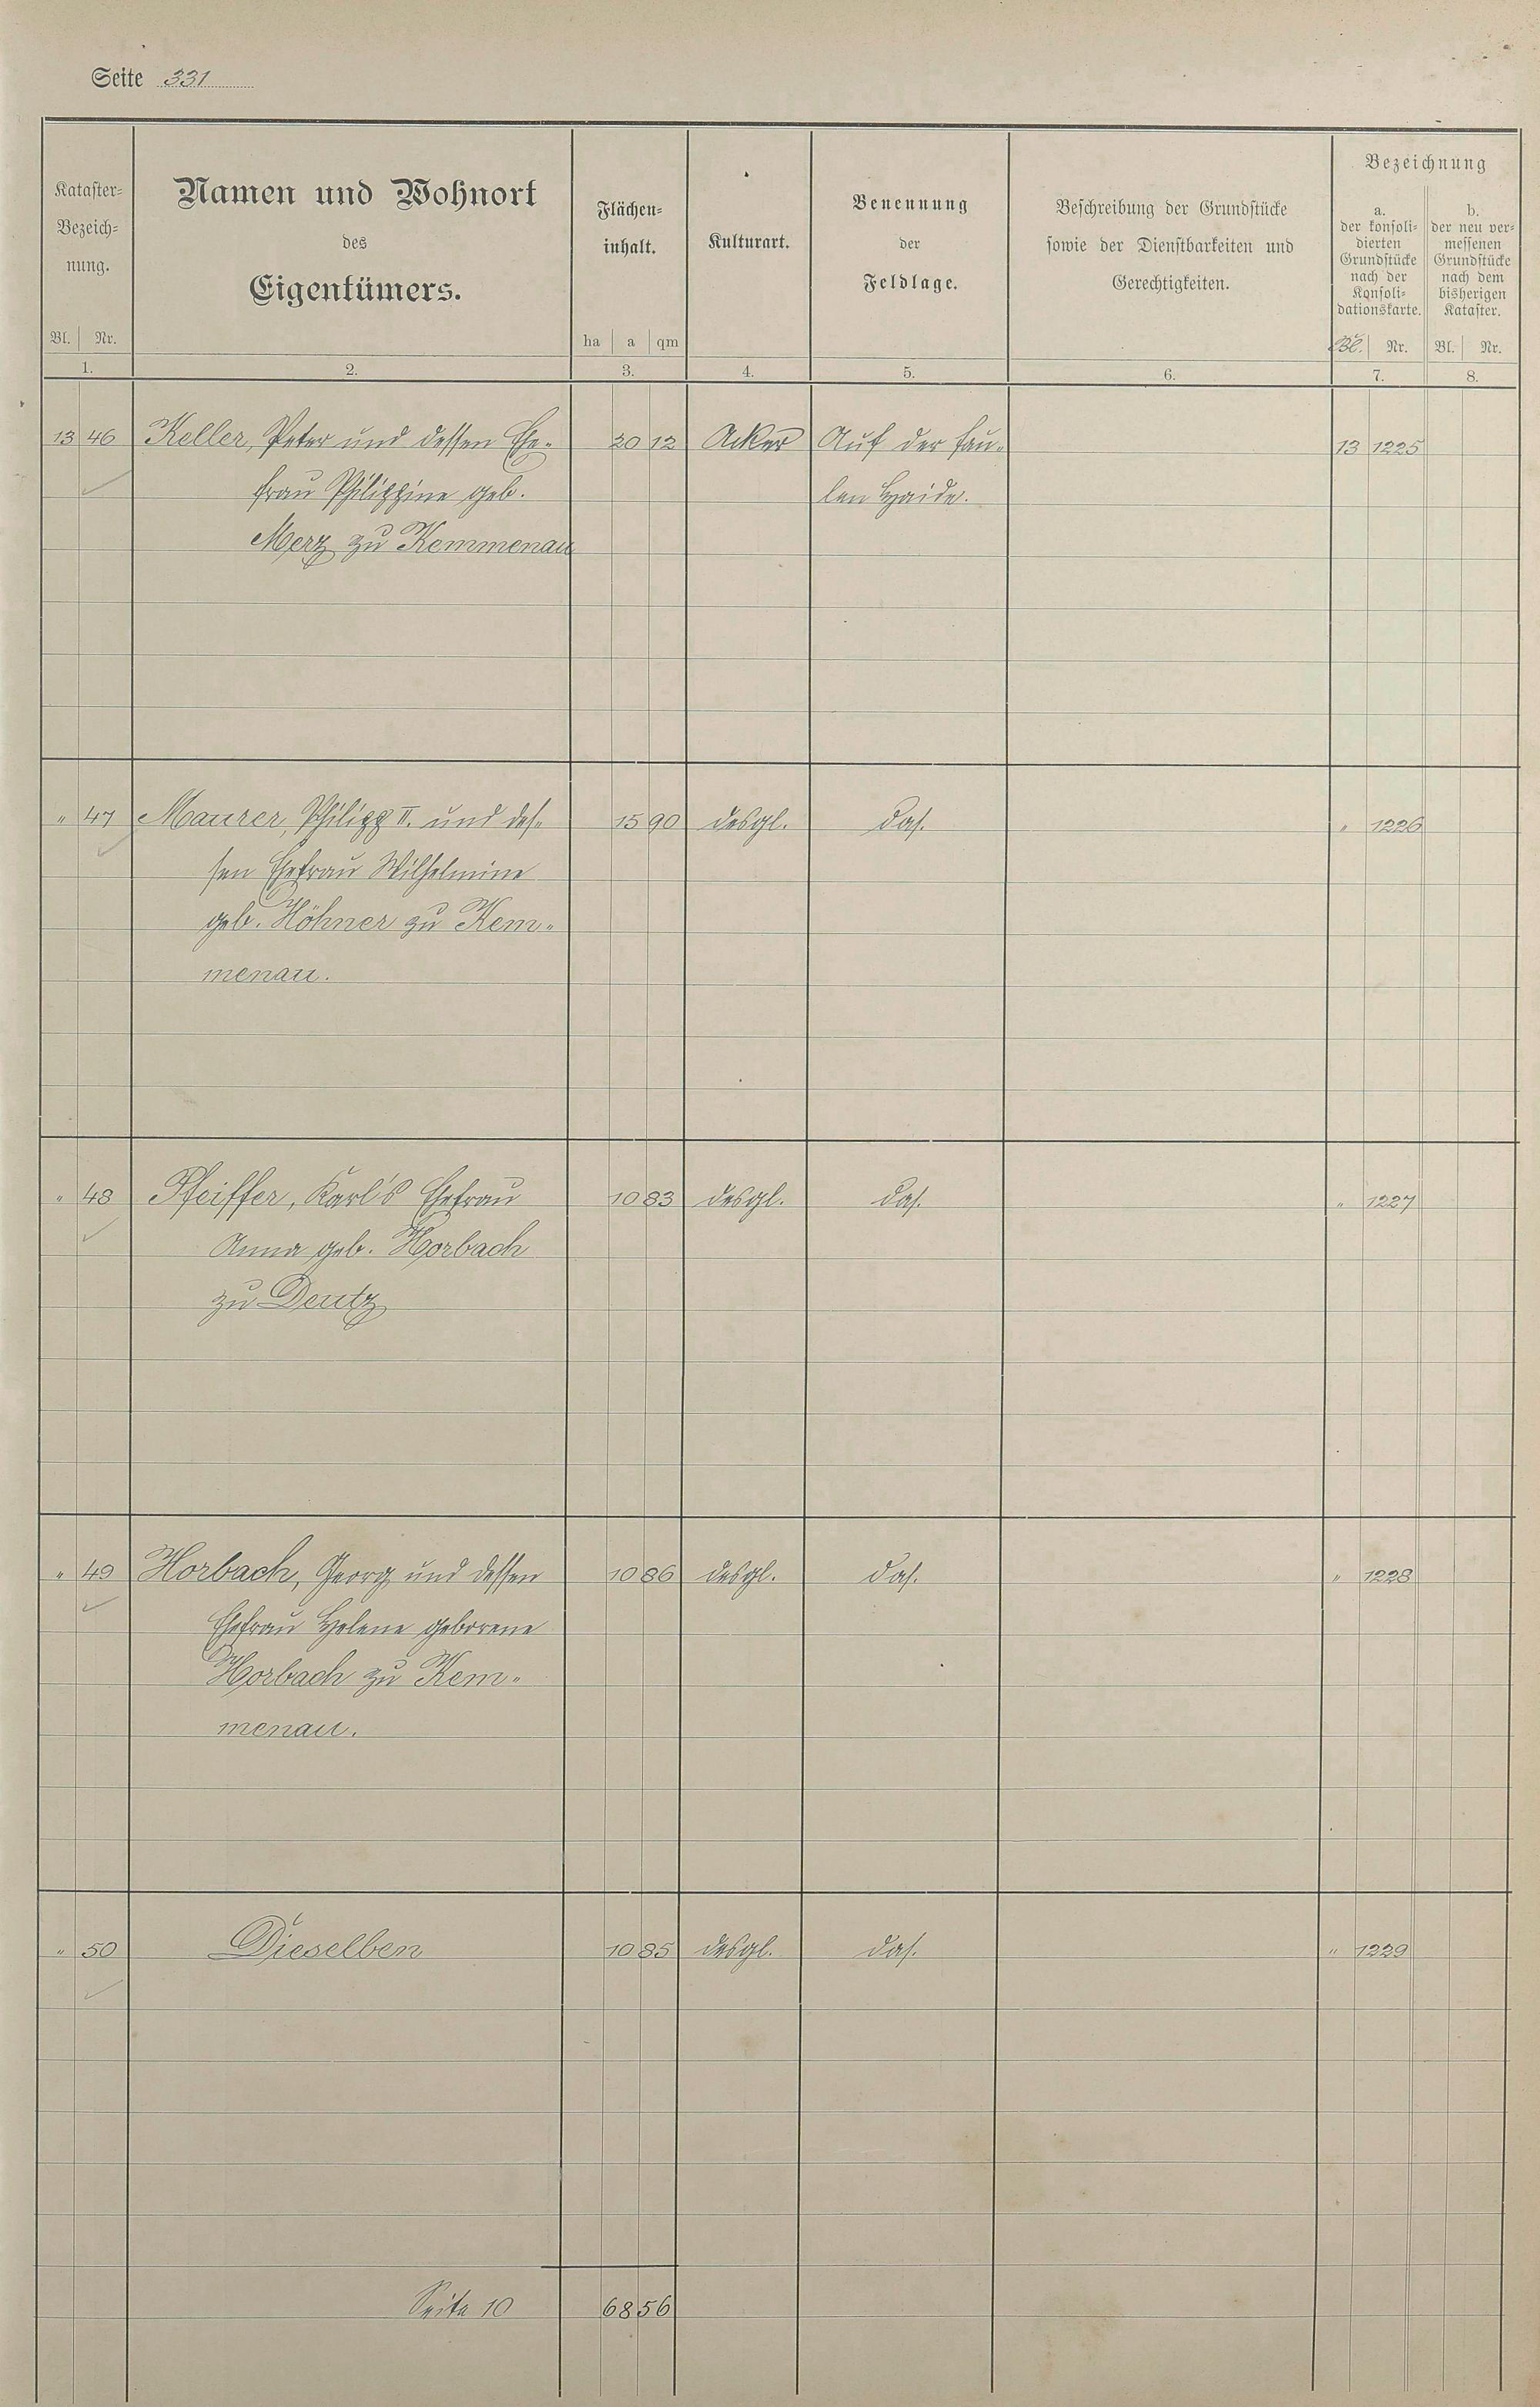 Seite 331
Kataster-Bezeich-nung. Namen und Wohnort des Eigentümers. Flächen-inhalt. Kulturart. Benennung der Feldlage. Beschreibung der Grundstücke sowie der Dienstbarkeiten und Gerechtigkeiten. Bezeichnung
a. der konsoli-dierten Grundstücke nach der Konsoli-dationskarte. b. der neu ver-messenen Grundstücke nach dem bisherigen Kataster.
Bl. Nr. ha a qm Bl. Nr. Bl. Nr.
1. 2. 3. 4. 5. 6. 7. 8.
13 46 Keller, Peter und dessen Ehe- 20 12 Acker Auf der fau- 13 1225
frau Philippine geb. len Haide.
Merz zu Kemmenau
" 47 Maurer, Philipp II. und des- 15 90 desgl. das. " 1226
sen Ehefrau Wilhelmine
geb. Höhner zu Kem-
menau.
" 48 Pfeiffer, Karl's Ehefrau 10 83 desgl. das. " 1227
Anna geb. Horbach
zu Deutz
" 49 Horbach, Georg und dessen 10 86 desgl. das. " 1228
Ehefrau Helene geborene
Horbach zu Kem-
menau.
" 50 Dieselben 10 85 desgl. das. " 1229
Seite 10 68 56